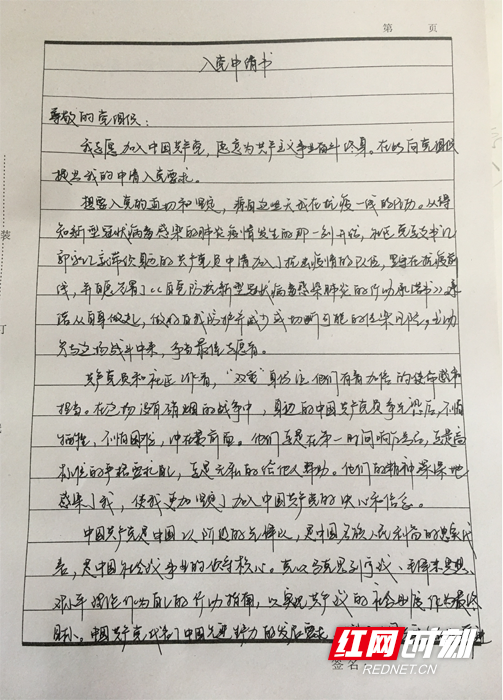 第 页
入党申请书
尊敬的党组织：
我志愿加入中国共产党，愿意为共产主义事业奋斗终身。在此向党组织
提出我的申请入党要求。
想要入党的迫切和坚定，源自这些天我在抗疫一线的行动。从得
知新型冠状病毒感染的肺炎疫情发生的那一刻开始，社区党总支书记
带领的共产党员申请加入了抗击疫情的队伍，坚守在抗疫前
线，并自愿签署了《自觉防抗新型冠状病毒感染肺炎的行动承诺书》承
诺从自身做起，做好自我防护并减少或切断可能的传染风险，主动
参与这场战斗中来，争当最佳志愿者。
共产党员和社区工作者，“双重”身份让他们有着加倍的使命感和
担当。在这场没有硝烟的战争中，身边的中国共产党员争先恐后，不怕
牺牲，不怕困难，冲在最前面。他们总是在第一时间响应号召，总是高
标准的严格要求自己，总是无私的给他人帮助。他们的精神深深地
感染了我，使我更加坚定了加入中国共产党的决心和信念。
中国共产党是中国工人阶级的先锋队，是中国各族人民利益的忠实代
表，是中国社会主义事业的领导核心。党以马克思列宁主义、毛泽东思想、
邓小平理论作为自己的行动指南，以实现共产主义的社会制度作为最终
目标。中国共产党代表了中国先进生产力的发展要求
签名
装
订
红网时刻
REDNET.CN